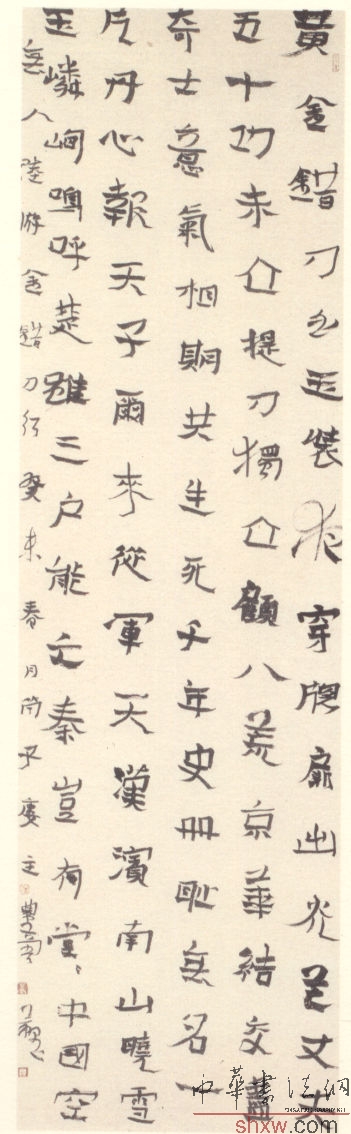 黃金錯刀白玉裝夜穿牕扉出光芒丈夫
五十功未立提刀獨立顧八荒京華結交盡
奇士意氣相期共生死千年史冊恥無名一
片丹心報天子爾來從軍天漢濱南山曉雪
玉嶙峋嗚呼楚雖三户能亡秦豈有堂〻中國空
無人陸游金錯刀行癸未春月主
中華書法網
shxw.com